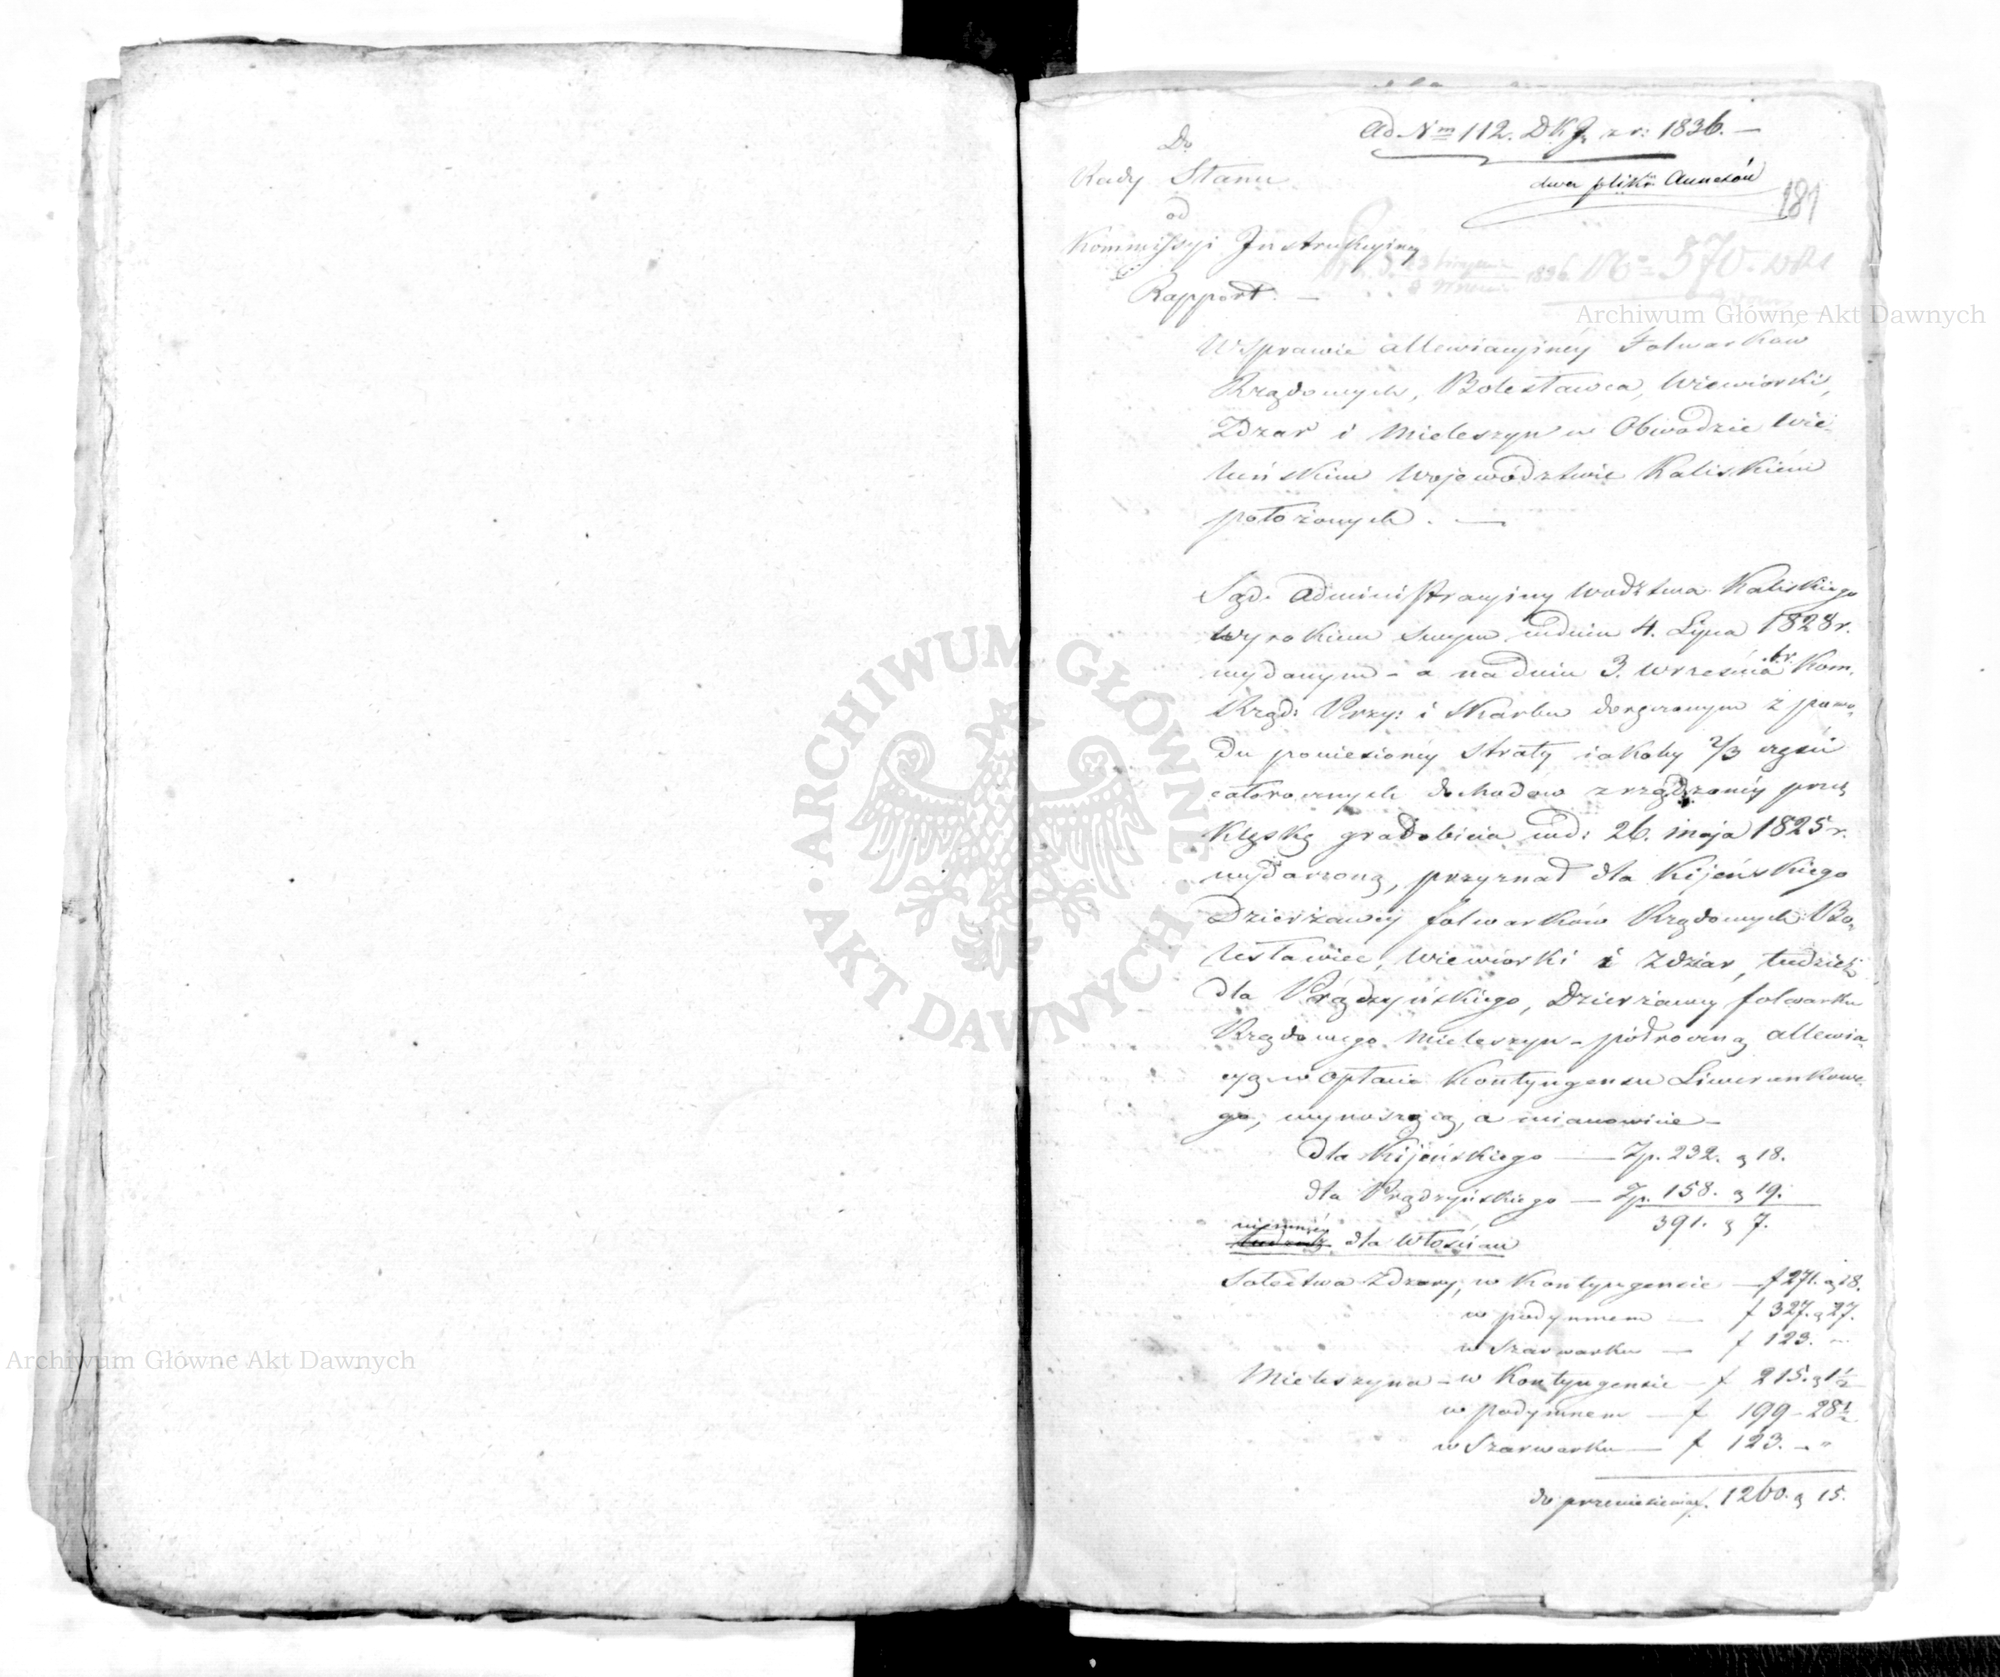 Ad Nm 112. D.K.J. z r: 1836. —
dwa pliki Annexów
181
Do
Rady Stanu
od
Kommissyi Instrukcyiney
Rapport. —
No 570.
1836
W Sprawie allewiacyiney Folwarków
Rządowych, Bolesławca, Wiewiorki,
Zdzar i Mieleszyn w Obwodzie Wie-
luńskim Województwie Kaliskiém
położonych. —
Sąd Administracyiny Wodztwa Kaliskiego
wyrokiem swym wdniu 4. Lipca 1828 r.
wydanym - a na dniu 3. Września t.r. Kom.
Rząd: Przy: i Skarbu doręczonym z powo-
du poniesioney straty iakoby 2/3 części
całorocznych dochodów zrządzoney przez
klęskę gradobicia wd: 26. maja 1825 r.
wydarzoną, przyznał dla Kijeńskiego
Dzierżawcy folwarków Rządowych Bo-
lesławiec, Wiewiórki i Zdziar, tudzież
dla Prądzyńskiego, Dzierżawcy folwarku
Rządowego Mieleszyn - półroczną allewia-
cyą w opłacie Kontyngensu Liwerunkowe-
go, wynoszącą, a mianowicie -
dla Kijeńskiego — Zp. 232. g 18.
dla Prądzyńskiego — Zp. 158. g 19.
391. g 7.
niemniéy
tudzież dla Włościan
Sołectwa Zdzary, w Kontyngensie — f 271. g 18.
w podymnem — f 327. g 27.
w Szarwarku — f 123. "
Mieleszyna - w Kontyngensie - f 215. g 1½
w podymnem — f 199 - 28½
w Szarwarku — f 123. - "
do przeniesienia f. 1260. g 15.
Archiwum Główne Akt Dawnych
ARCHIWUM GŁÓWNE · AKT DAWNYCH ·
Archiwum Główne Akt Dawnych